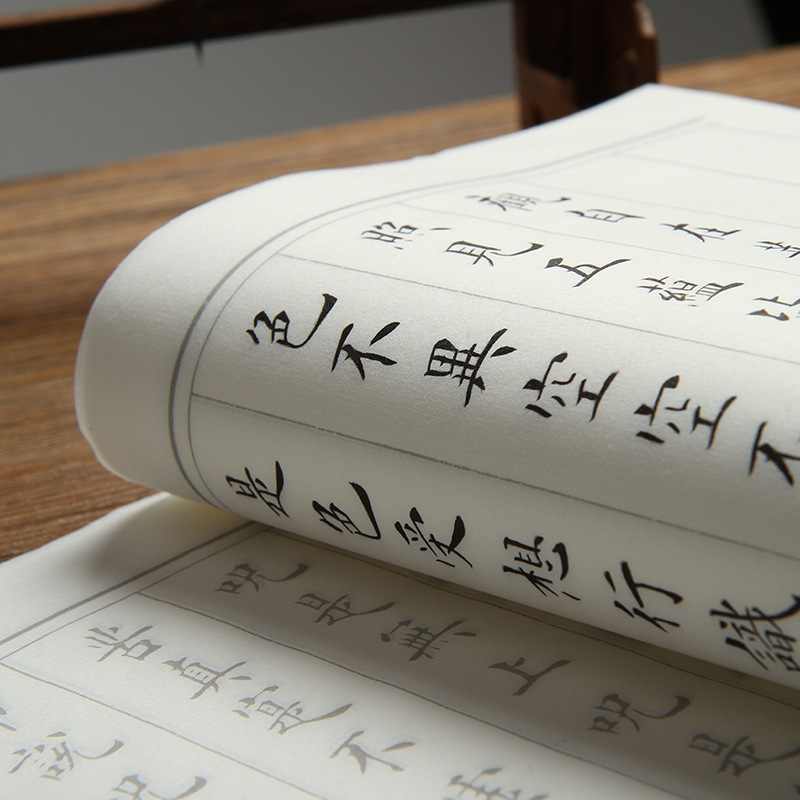 觀自在
照見五蘊
色不異空空不
是色受想行識
呪是無上呪是
苦真實不
說呪